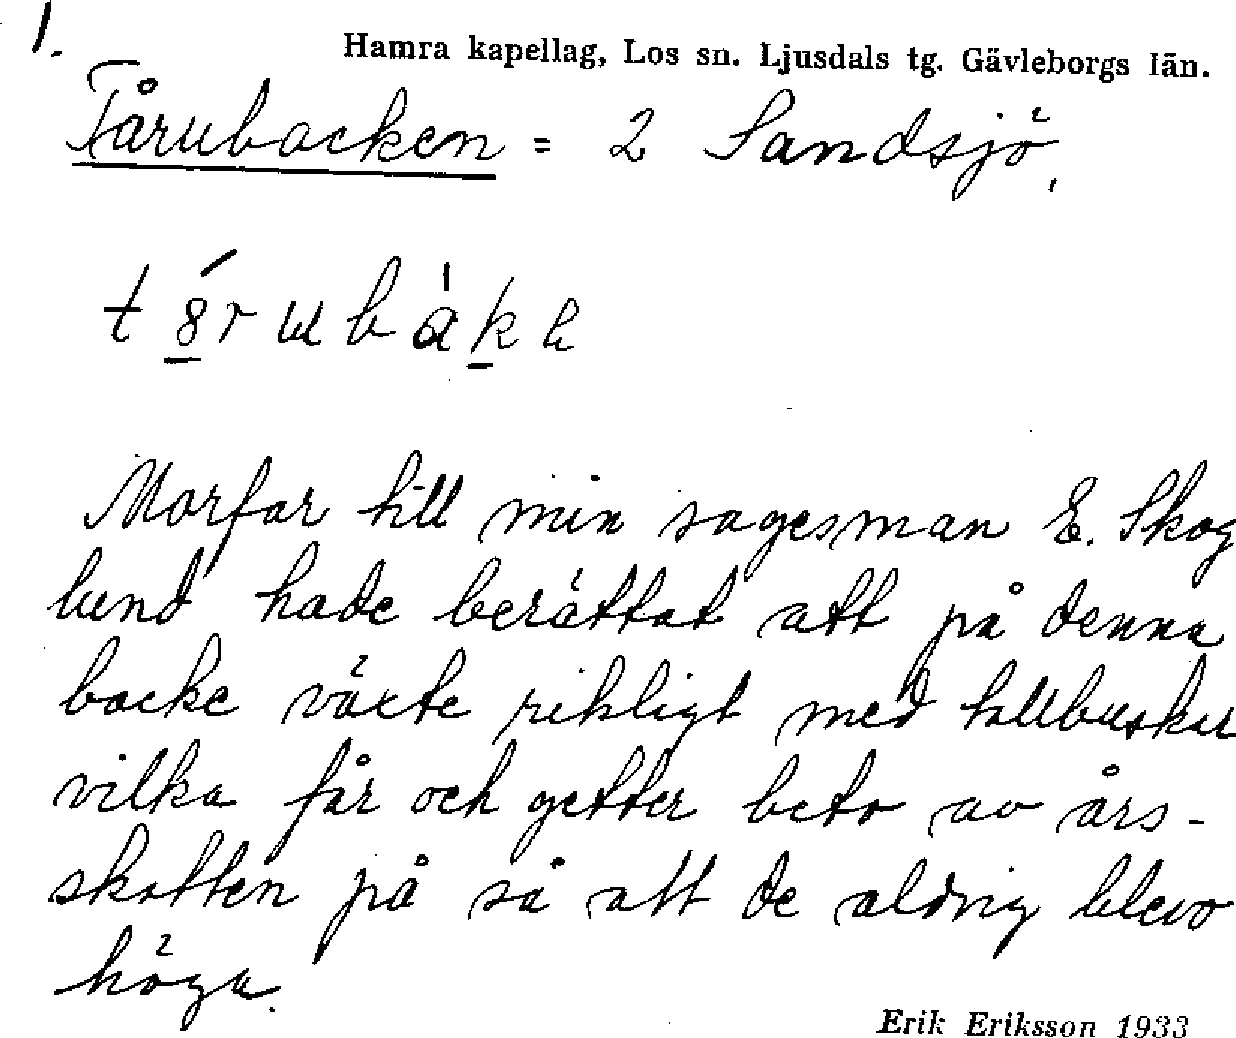 1.
Hamra kapellag, Los sn. Ljusdals tg. Gävleborgs län.
Tårubacken = 2 Sandsjö,
Morfar till min sagesman E. Skog
lund hade berättat att på denna
backe växte rikligt med tallbuskar
vilka får och getter beto av års-
skotten på så att de aldrig blevo
höga.
Erik Eriksson 1933